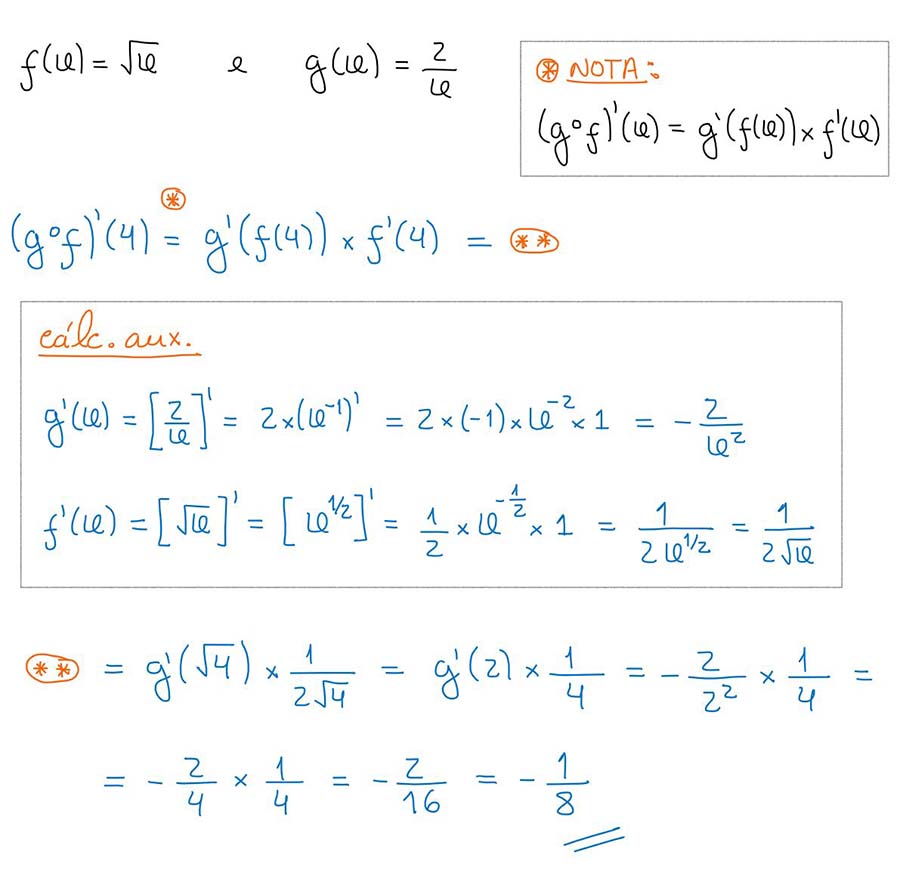 f(x) = √x e g(x) = 2/x
⊛ NOTA:
(g∘f)'(x) = g'(f(x)) × f'(x)
(g∘f)'(4) =⊛ g'(f(4)) × f'(4) = (**)
cálc. aux.
g'(x) = [2/x]' = 2×(x⁻¹)' = 2×(-1)×x⁻²×1 = -2/x²
f'(x) = [√x]' = [x^1/2]' = 1/2 × x^-1/2 × 1 = 1/(2x^1/2) = 1/(2√x)
(**) = g'(√4) × 1/(2√4) = g'(2) × 1/4 = -2/2² × 1/4 =
= -2/4 × 1/4 = -2/16 = -1/8